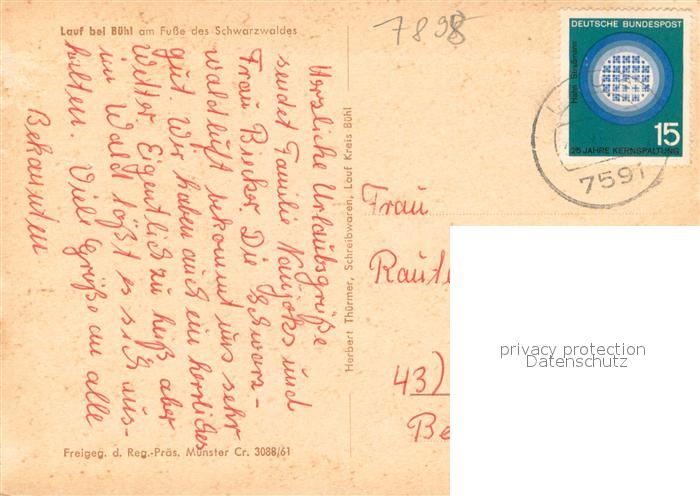 Lauf bei Bühl am Fuße des Schwarzwaldes
7898
DEUTSCHE BUNDESPOST
Hahn · Straßmann
15
25 JAHRE KERNSPALTUNG
7591
Herzliche Urlaubsgrüße
sendet Familie Naujoks und
Frau Bincker. Die Schwarz-
waldluft bekommt uns sehr
gut. Wir haben auch ein herrliches
Wetter. Eigentlich zu heiß aber
im Wald läßt es sich aus-
halten. Viele Grüße an alle
Bekannten
Herbert Thürmer, Schreibwaren, Lauf Kreis Bühl
Frau
Raute
43)
Be
privacy protection
Datenschutz
Freigeg. d. Reg.-Präs. Münster Cr. 3088/61